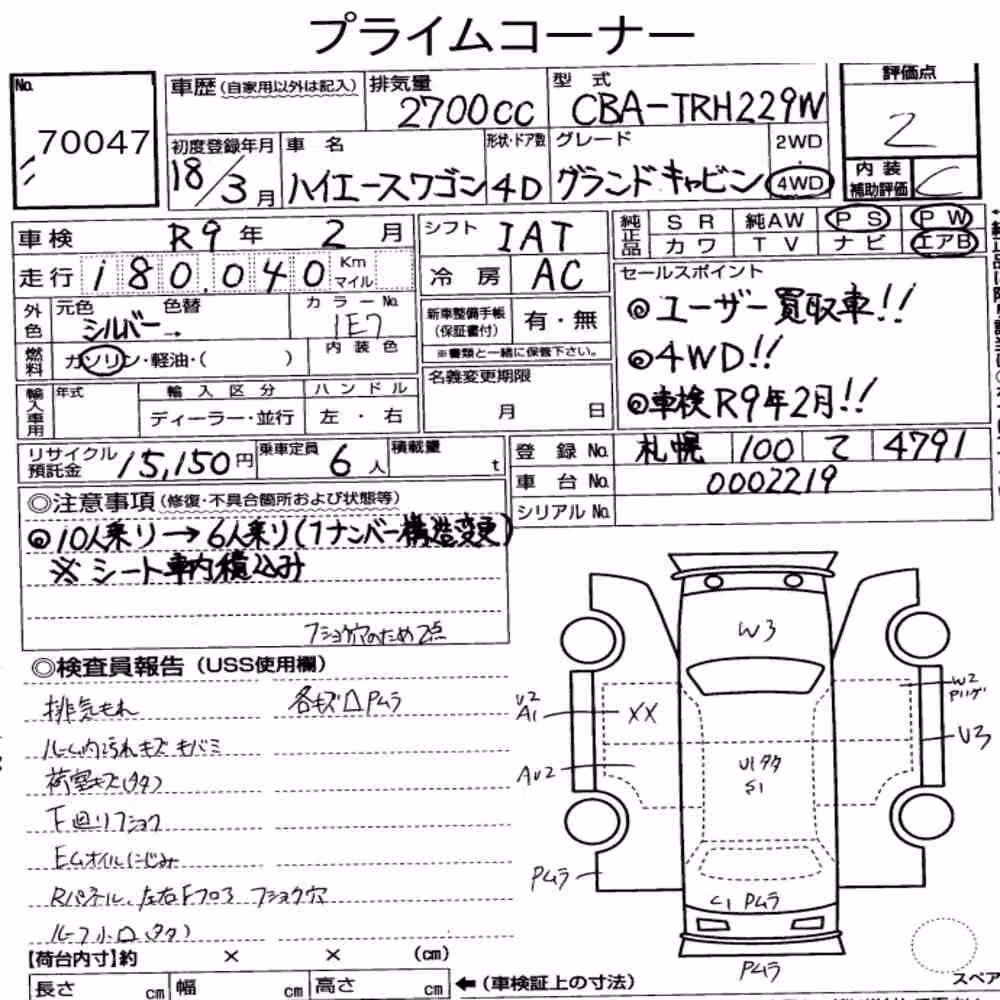 プライムコーナー
No. 70047
車歴(自家用以外は記入)
排気量 2700cc
型式 CBA-TRH229W
評価点 2
初度登録年月 18/3月
車名 ハイエースワゴン
形状・ドア数 4D
グレード グランドキャビン
2WD
4WD
内装補助評価 C
車検 R9年 2月
シフト IAT
純正品 SR 純AW PS PW
カワ TV ナビ エアB
走行 180.040 Km マイル
冷房 AC
セールスポイント
◎ユーザー買取車!!
◎4WD!!
◎車検R9年2月!!
外色 元色 シルバー→ 色替
カラーNo. 1E7
新車整備手帳(保証書付) 有・無
※書類と一緒に保管下さい。
燃料 ガソリン・軽油・( )
内装色
名義変更期限 月 日
輸入車用 年式 輸入区分 ハンドル
ディーラー・並行 左・右
リサイクル預託金 15,150円
乗車定員 6人
積載量 t
登録No. 札幌 100 て 4791
車台No. 0002219
シリアルNo.
◎注意事項(修復・不具合箇所および状態等)
◎10人乗り→6人乗り(1ナンバー構造変更)
※シート車内積込み
フショク穴のため2点
◎検査員報告(USS使用欄)
排気もれ 各キズ凹Pムラ
ルーム内汚れキズキバミ
荷室キズ(タタ)
下廻りフショク
Eムオイルにじみ
Rパネル、左右Fフロア フショク穴
ルーフ小凹(タタ)
W3
U2
A1
XX
W2
U3
AU2
U1タタ
S1
Pムラ
C1 Pムラ
Pムラ
【荷台内寸】約 × × (cm)
長さ cm 幅 cm 高さ cm ←(車検証上の寸法)
スペア